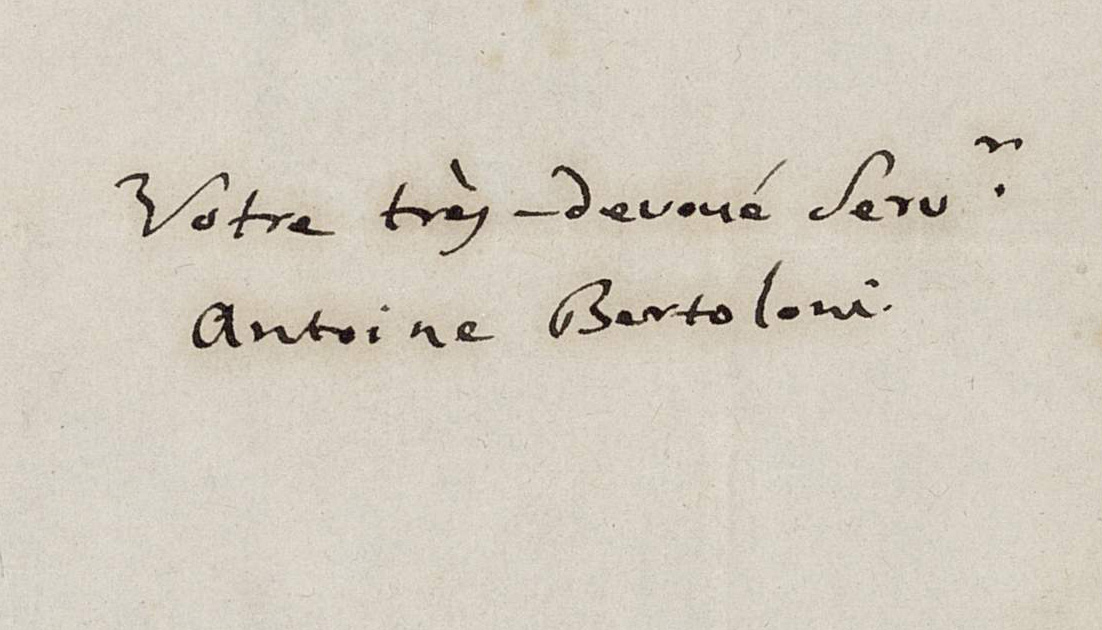 Votre très-devoué Serv.r
Antoine Bertoloni.